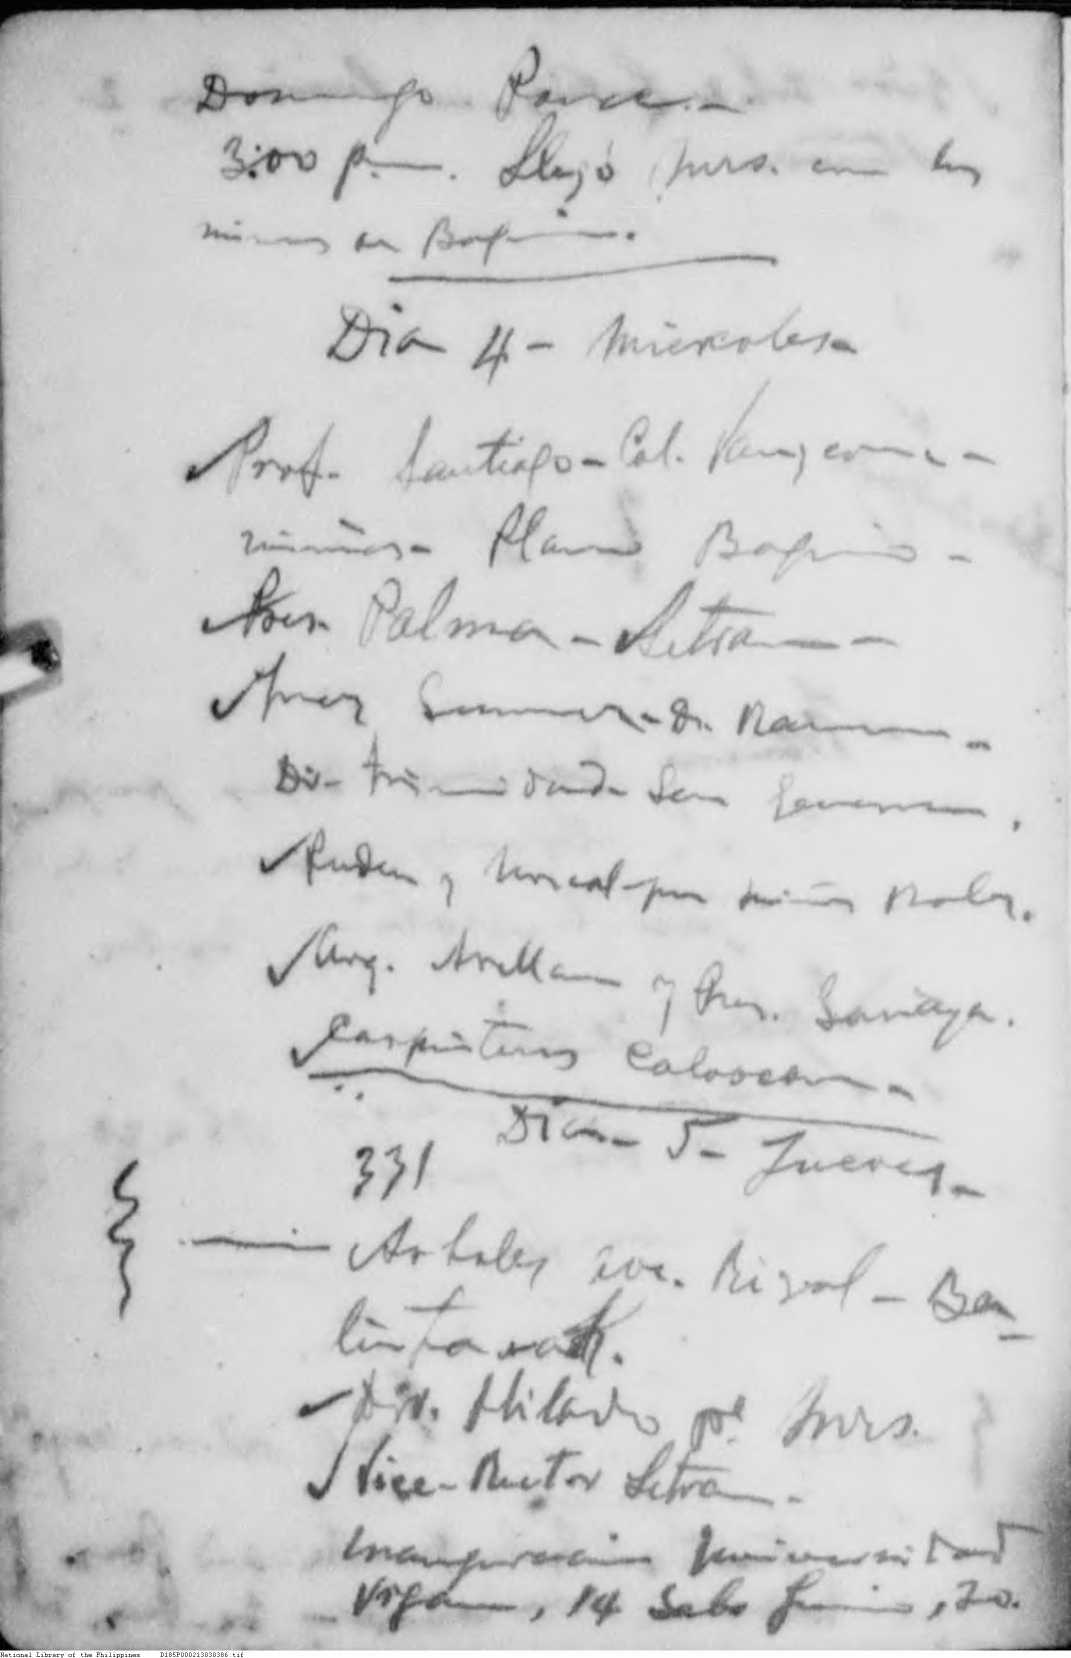 Domingo Ponce.-
3:00 p.m. Llegó Mrs. con los
niños de Baguio.
Dia 4 - Miercoles-
Prof. Santiago - Col.
niñas - Plano Baguio -
Pres. Palma - Letran -
Juez - Dr.
Dr. Trinidad - San
Ruben y por niños
Arq. Arellano y Pres.
Carpinteros Caloocan -
Dia - 5 - Jueves -
331
Arboles ave. Rizal - Ba-
lintawak.
Dir. Hilado pa Mrs.
Vice-Rector Letran -
Inauguracion Universidad
Vigan, 14 Sab. Junio, 30.
National Library of the Philippines D185P000213838386.tif